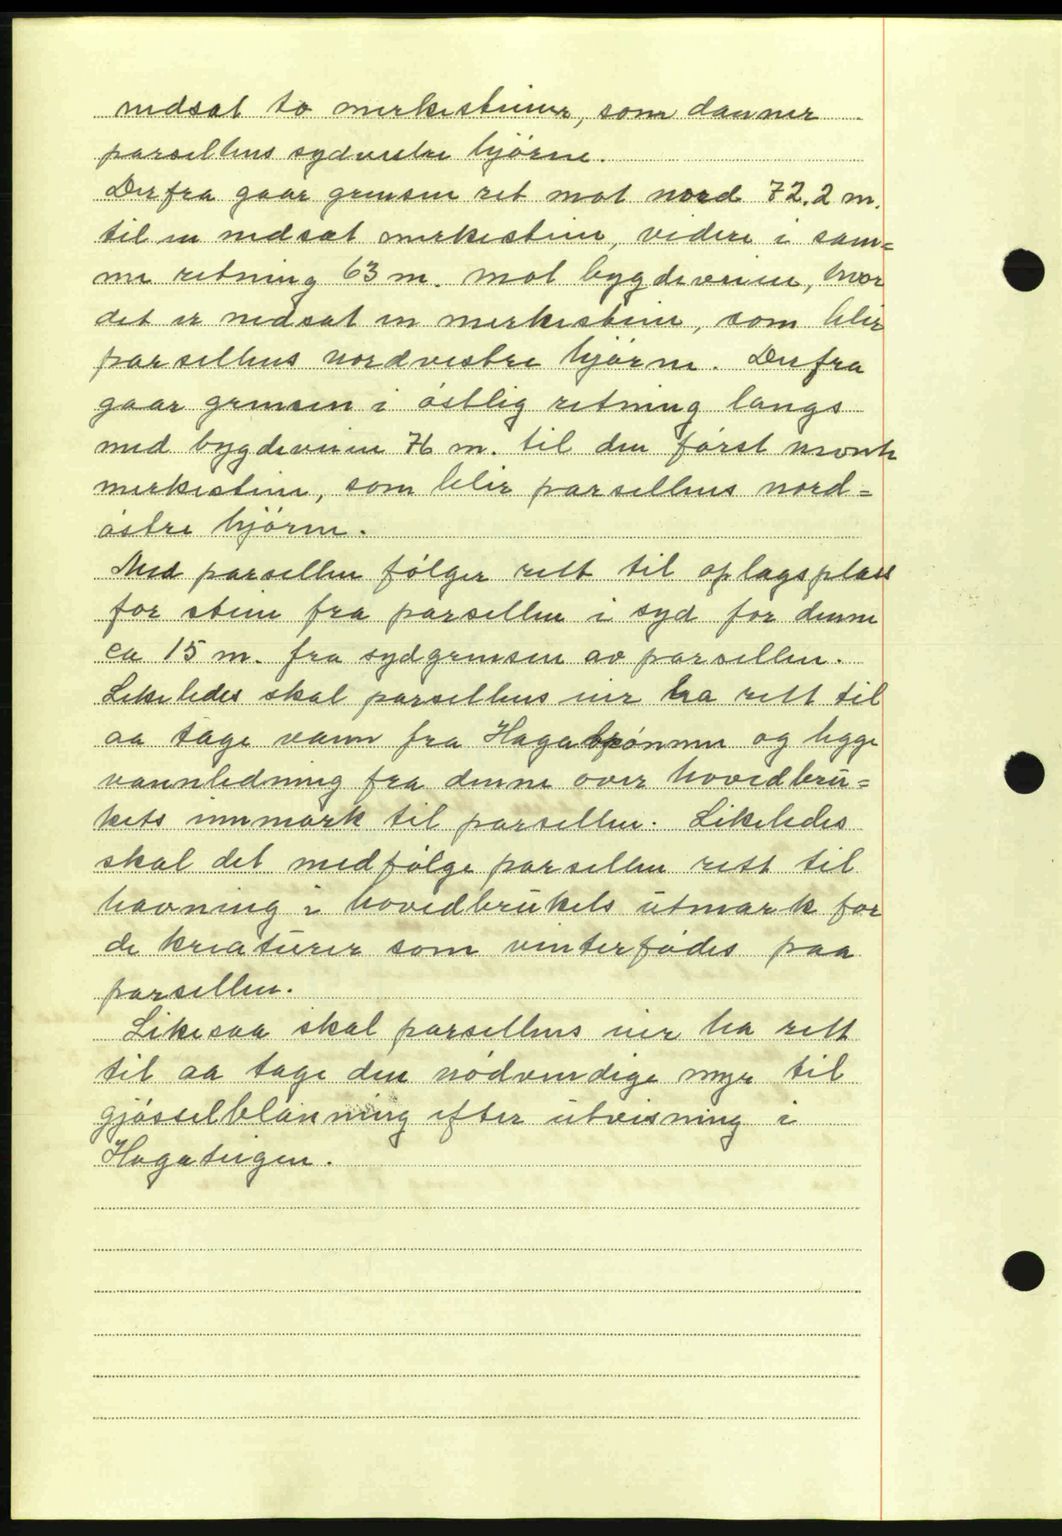 nedsat to merkesteiner, som danner
parsellens sydvestre hjörne.
Derfra gaar grensen ret mot nord 72.2 m.
til en nedsat merkestein, videre i sam=
me retning 63 m. mot bygdeveien, hvor
det er nedsat en merkestein, som blir
parsellens nordvestre hjörne. Derfra
gaar grensen i östlig retning langs
med bygdeveien 76 m. til den förstnevnte
merkestein, som blir parsellens nord=
östre hjörne.
Med parsellen fölger rett til oplagsplass
for stein fra parsellen i syd for denne
ca 15 m. fra sydgrensen av parsellen.
Likeledes skal parsellens eier ha rett til
aa tage vann fra Hagabrönnen og legge
vannledning fra denne over hovedbru=
kets innmark til parsellen. Likeledes
skal det medfölge parsellen rett til
havning i hovedbrukets utmark for
de kreaturer som vinterfödes paa
parsellen.
Likesaa skal parsellens eier ha rett
til aa tage den nödvendige myr til
gjösselblanning efter utvisning i
Hagateigen.